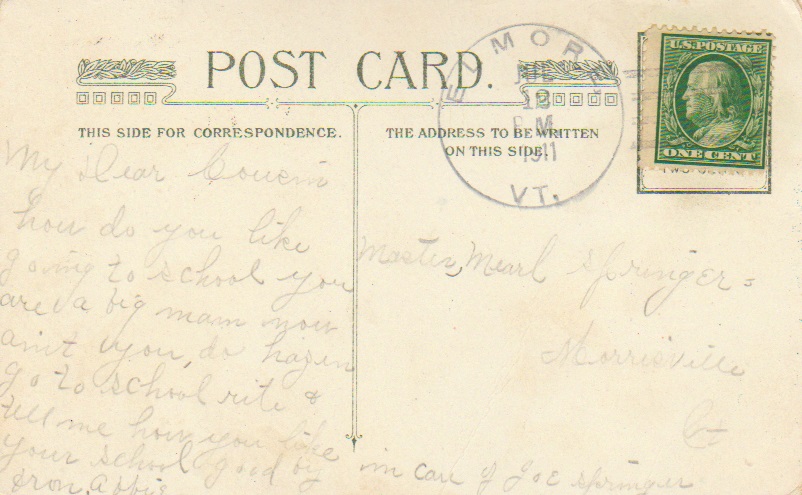 POST CARD.
THIS SIDE FOR CORRESPONDENCE.
THE ADDRESS TO BE WRITTEN
ON THIS SIDE.
MORE
JUL
12
P.M.
1911
VT.
U.S. POSTAGE
ONE CENT
My Dear Cousin
how do you like
going to school you
are a big mam now
aint you, do hazen
go to school rite &
tell me how you like
your school good by
from Abbie
Master Mearl Springer
Morrisville
in car of Joe Springer